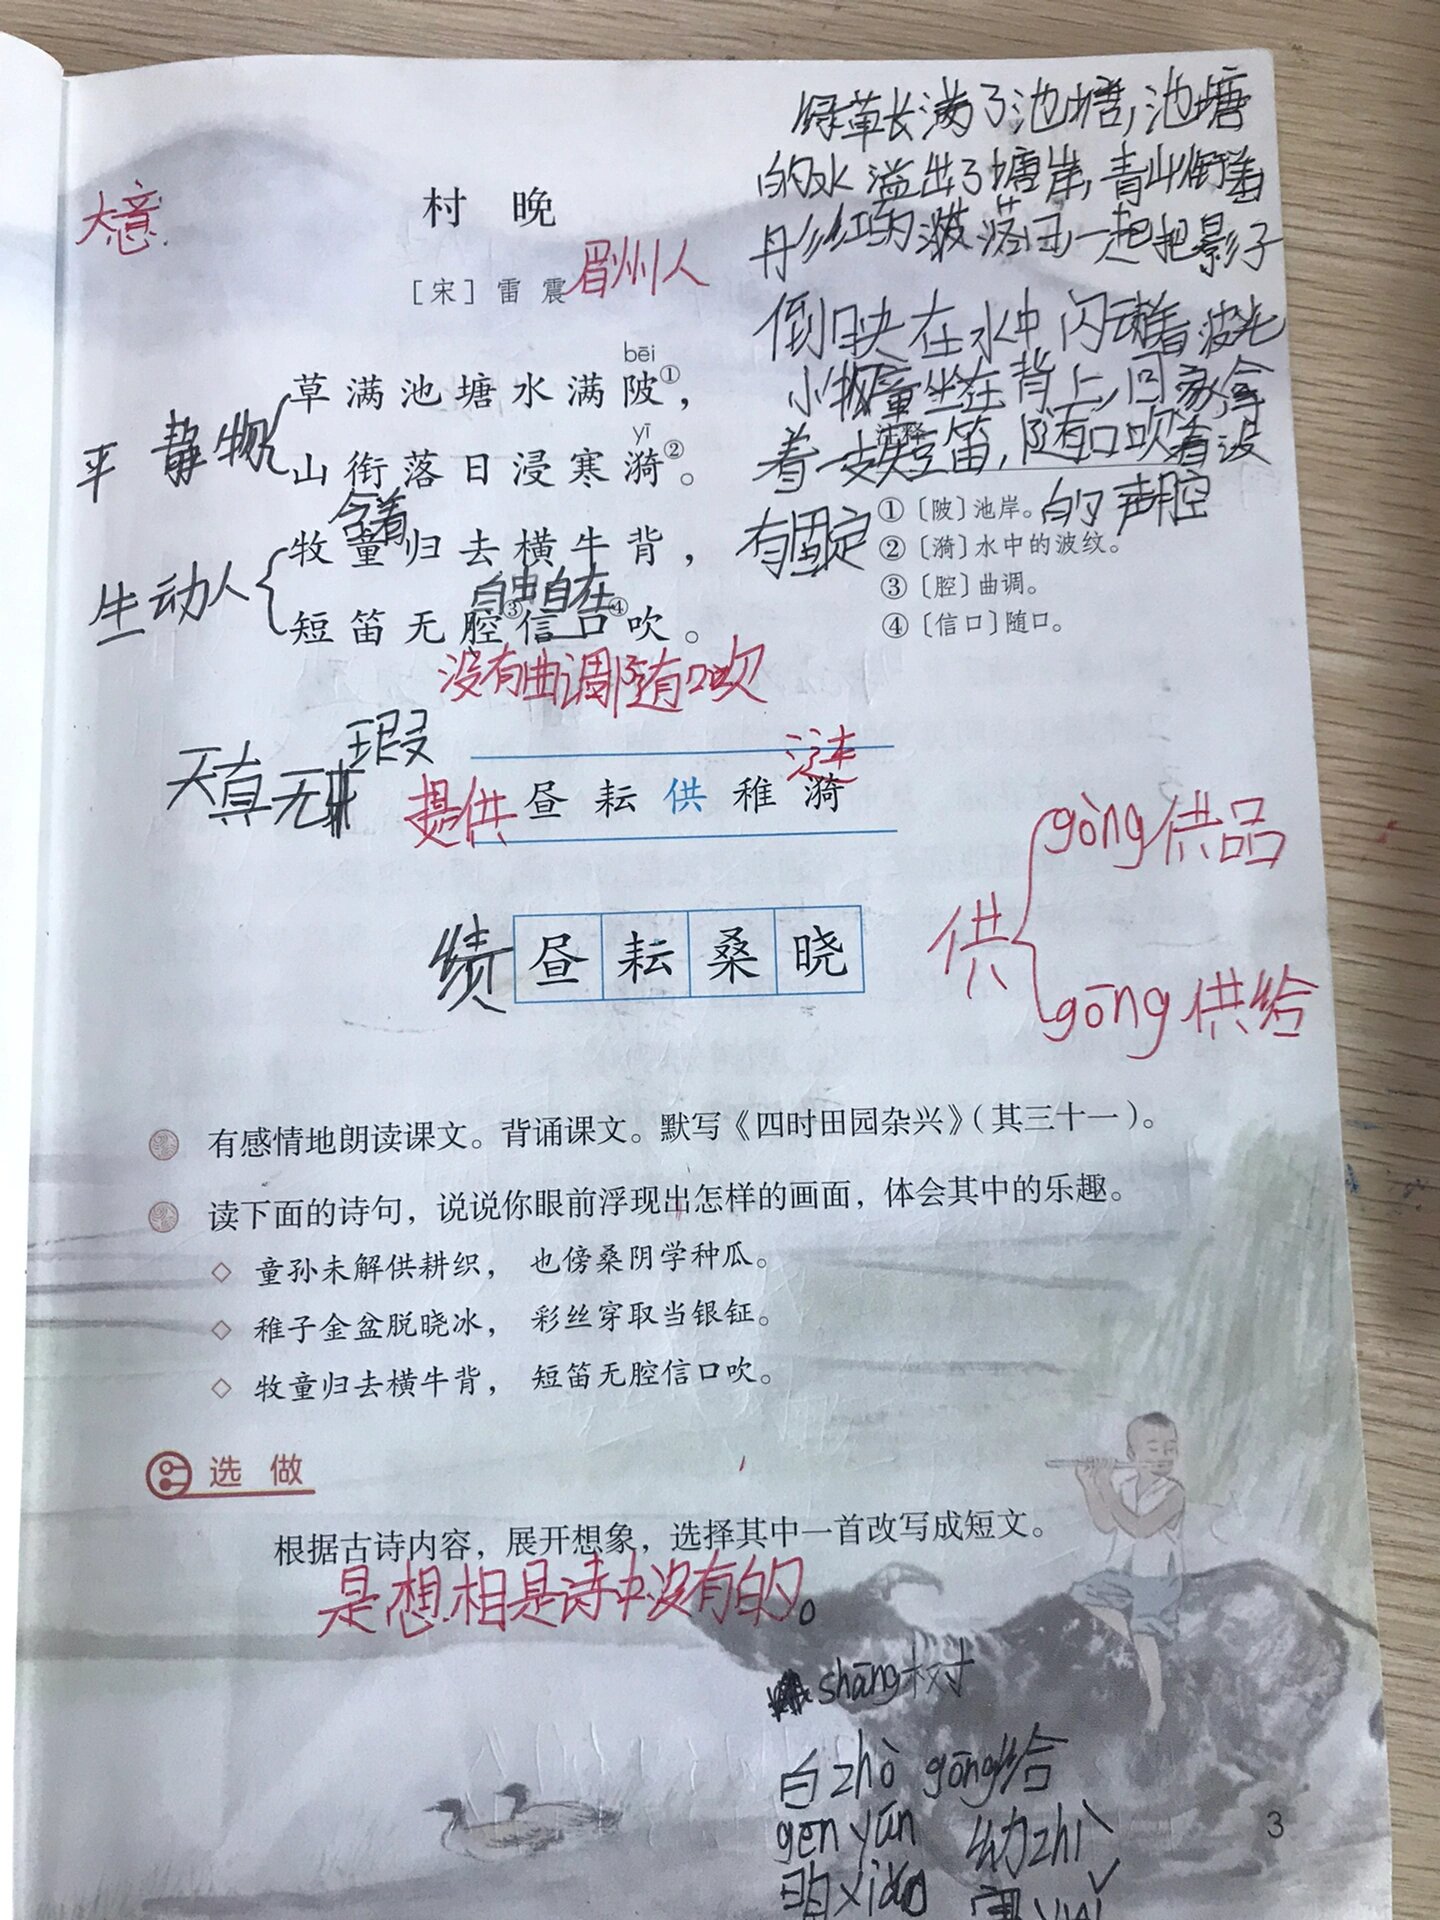 绿草长满了池塘,池塘
的水溢出了塘岸,青山衔着
红的 落日一起把影子
倒映在水中闪动着波光
小牧童坐在背上,回家拿
着一支短笛,随口吹着没
有固定的声腔
大意
村晚
[宋]雷震
眉州人
bēi
草满池塘水满陂①,
yī
山衔落日浸寒漪②。
平静物
含着
牧童归去横牛背,
生动人
自由自在
短笛无腔③信口④吹。
没有曲调随有口吹
注释
①〔陂〕池岸。
②〔漪〕水中的波纹。
③〔腔〕曲调。
④〔信口〕随口。
天真无瑕
提供
涟
昼耘供稚漪
gòng供品
供
gōng供给
绩
昼耘桑晓
有感情地朗读课文。背诵课文。默写《四时田园杂兴》(其三十一)。
读下面的诗句,说说你眼前浮现出怎样的画面,体会其中的乐趣。
◇ 童孙未解供耕织, 也傍桑阴学种瓜。
◇ 稚子金盆脱晓冰, 彩丝穿取当银钲。
◇ 牧童归去横牛背, 短笛无腔信口吹。
选做
根据古诗内容,展开想象,选择其中一首改写成短文。
是想相是诗中没有的。
shāng树
白zhò gōng给
gēn yún 幼zhì
3